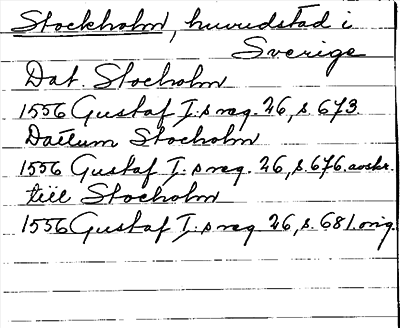 Stockholm, huvudstad i
Sverige
Dat. Stocholm
1556 Gustaf I:s reg. 26, s. 673.
Datum Stocholm
1556 Gustaf I:s reg. 26, s. 676. avskr.
till Stocholm
1556 Gustaf I:s reg. 26, s. 681. orig.